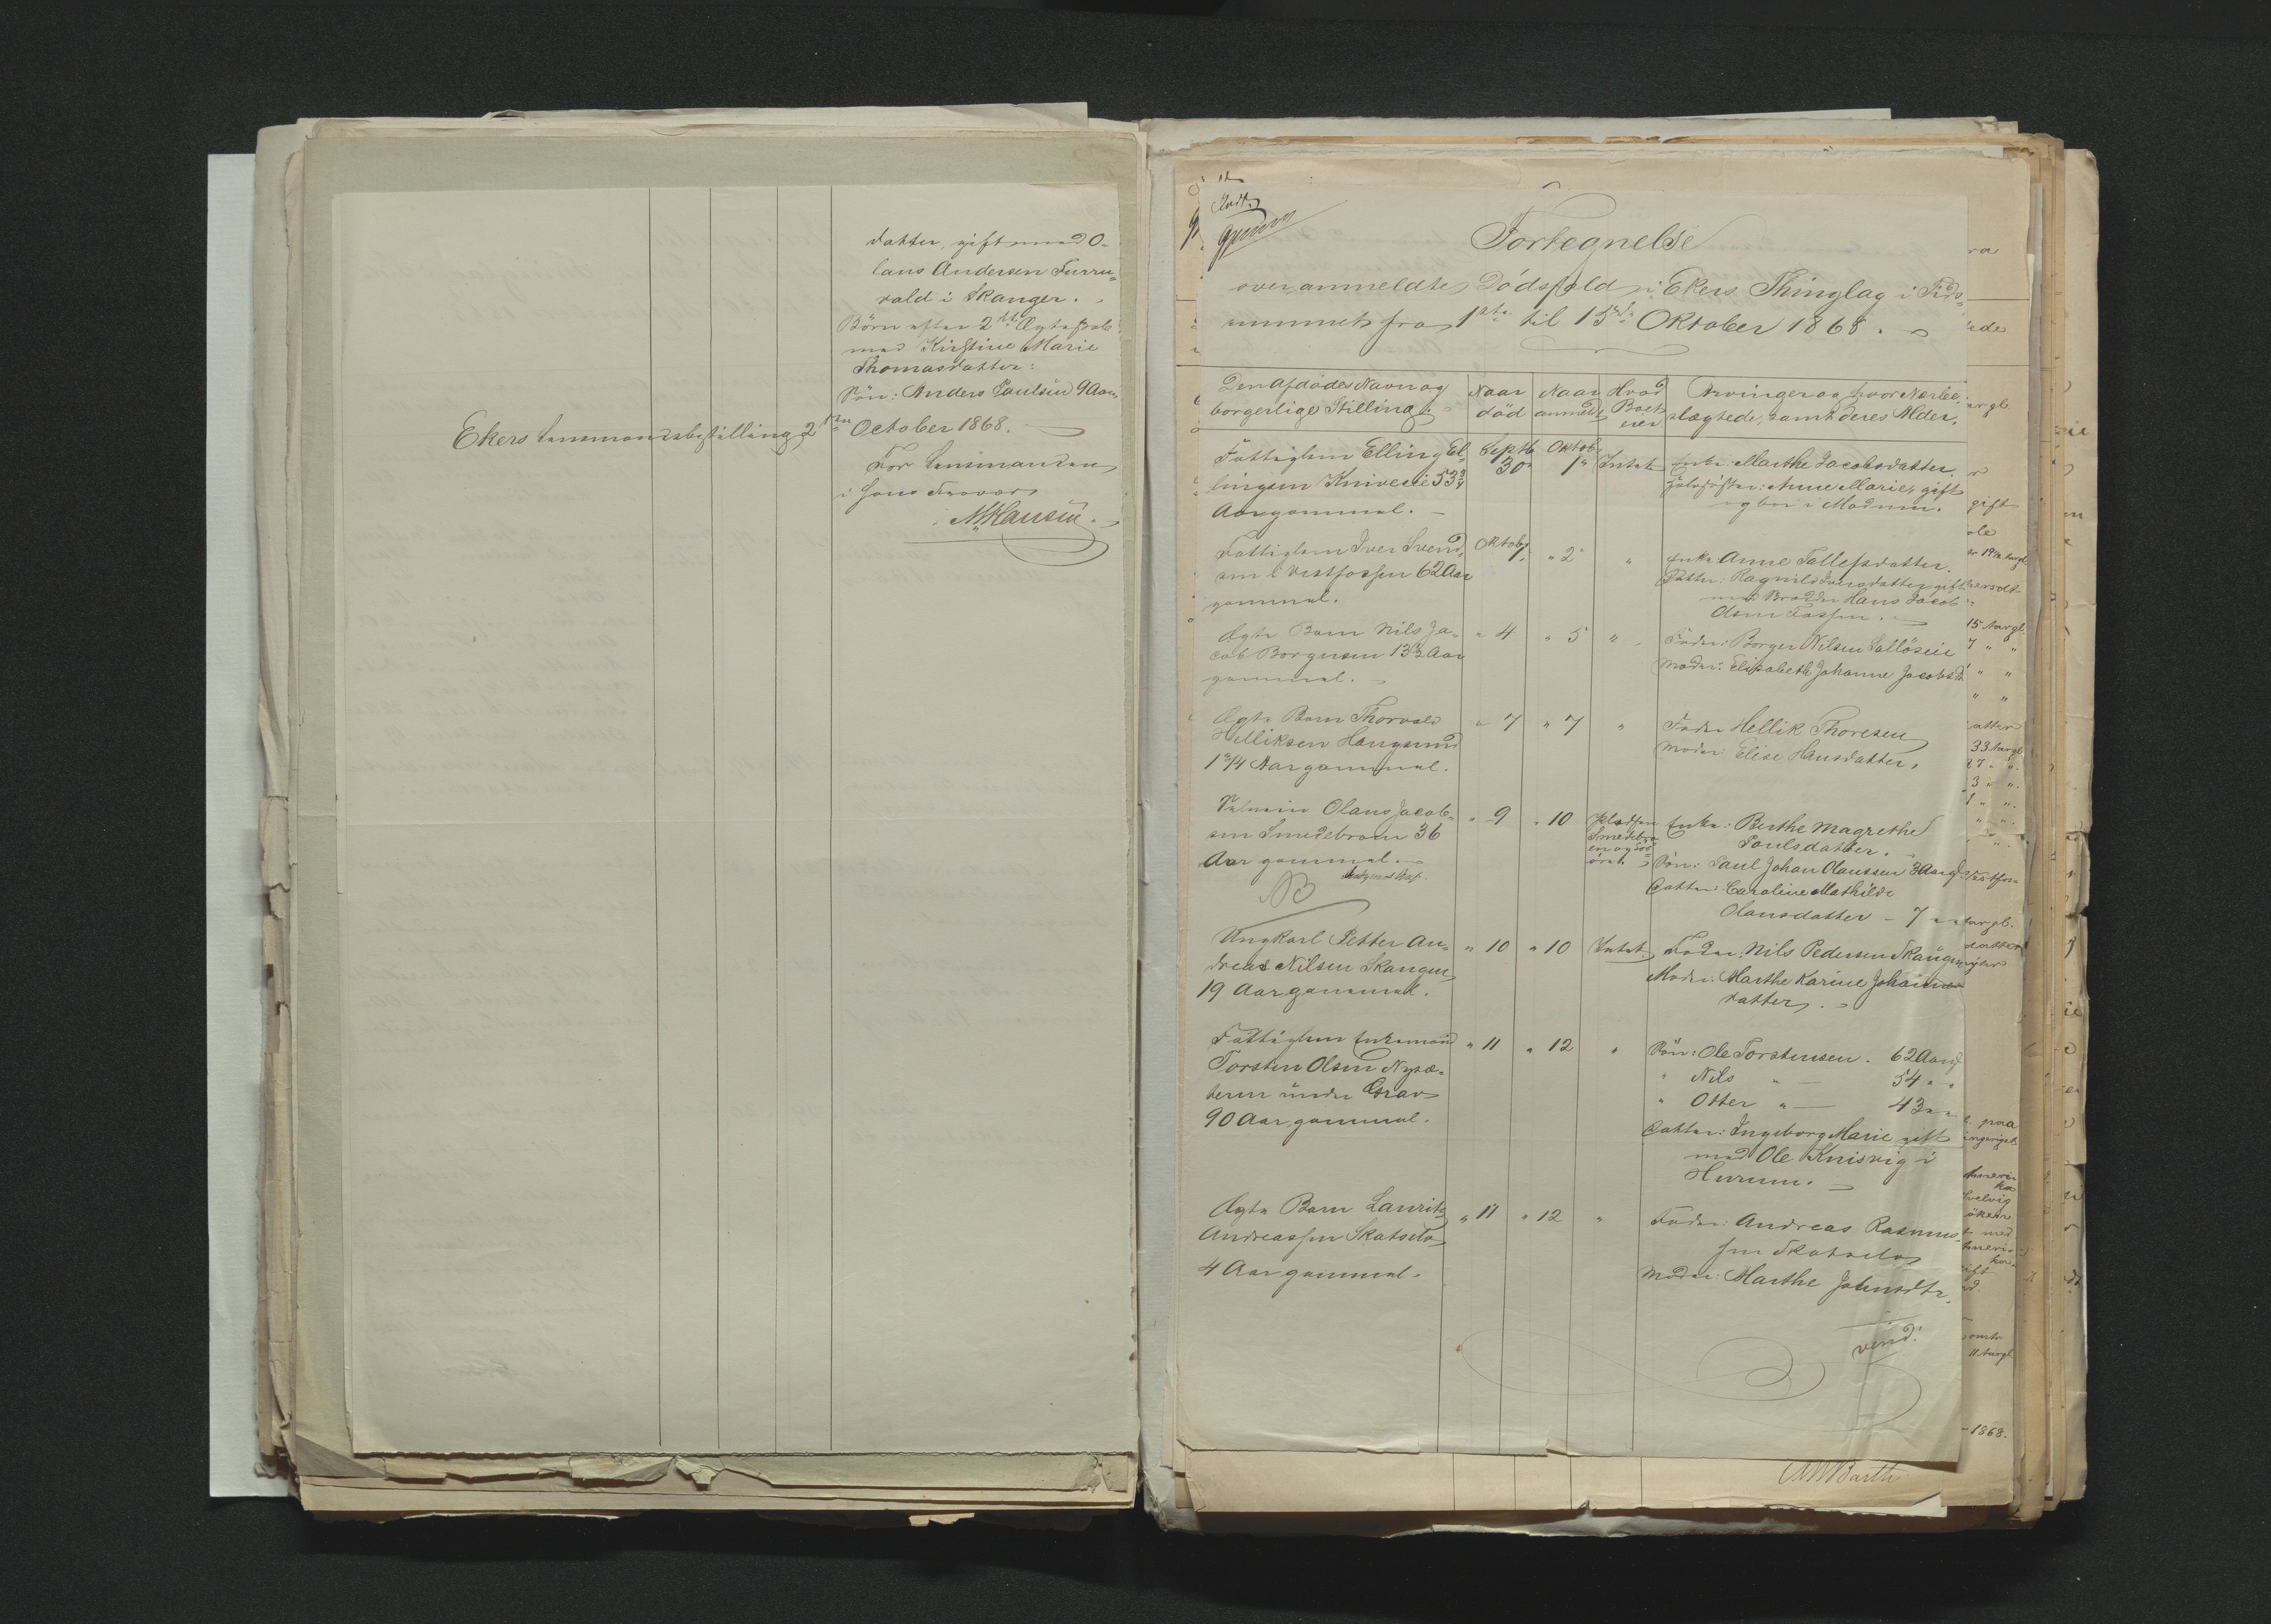 datter, gift med O-
laus Andersen Furru-
vald i Skanger.
Börn efter 2det Ægteskab
med Kirstine Marie
Thomasdatter:
Sön: Anders Paulsen 9 Aar
Ekers Lensmandsbestilling 2den October 1868.
For Lensmanden
i hans Fravær
M. Hansen.
Fortegnelse
over anmeldte Dödsfald i Ekers Thinglag i Tids-
rummet fra 1ste til 15de Oktober 1868.
Den Afdødes Navn og
borgerlige Stilling.
Naar
död
Naar
anmeldt
Hvad
Boet
eier
Arvinger og hvor Nærbe-
slægtede, samt deres Alder.
Fattiglem Elling El-
lingsen Kniveeie 53¾
Aar gammel.
Septb.
30
Oktob.
1
Intet
Enke: Marthe Jacobsdatter
Anne Marie, gift
og boer i Modum.
Fattiglem Iver Svend-
sen Vestfossen 62 Aar
gammel.
Oktob.
1.
" 2
"
Enke Anne Tollefsdatter.
Datter: Ragnild Iversdatter gift
med Hans Jacob
Olsen Fossen.
Ægte Barn Nils Ja-
cob Borgersen 13½ Aar
gammel.
" 4
" 5
"
Fader: Borger Nilsen Sollöseie
Moder: Elisabeth Johanne Jacobsd.
Ægte Barn Thorvald
Helliksen Haugsund
1 3/4 Aar gammel.
" 7
" 7
"
Fader Hellik Thoresen
Moder: Elise Hansdatter.
Olaus Jacob-
sen Smedebroen 36
Aar gammel.
NB
" 9
" 10
Smedebro-
en og Lös-
öret.
Enke: Berthe Magrethe
Poulsdatter.
Sön: Paul Johan Olaussen 3 Aar gl.
Datter: Caroline Mathilde
Olausdatter - 7 " "
Ungkarl Petter An-
dreas Nilsen Skanger
19 Aar gammel.
" 10
" 10
Intet
Fader: Nils Pedersen Skanger
Moder: Marthe Karine Johanne-
datter.
Fattiglem Enkemand
Torsten Olsen Nysæ-
teren under Grav
90 Aar gammel.
" 11
" 12
"
Sön: Ole Torstensen. 62 Aar gl
" Nils " — 54 " "
" Otter " — 43 " "
Datter: Ingeborg Marie gift
med Ole Knivsvig i
Hurum.
Ægte Barn Lauritz
Andreassen Skotselv
4 Aar gammel.
" 11
" 12
"
Fader: Andreas Rasmus-
sen Skotselv
Moder: Marthe Johnsdtr.
vend!
1868.
Barth